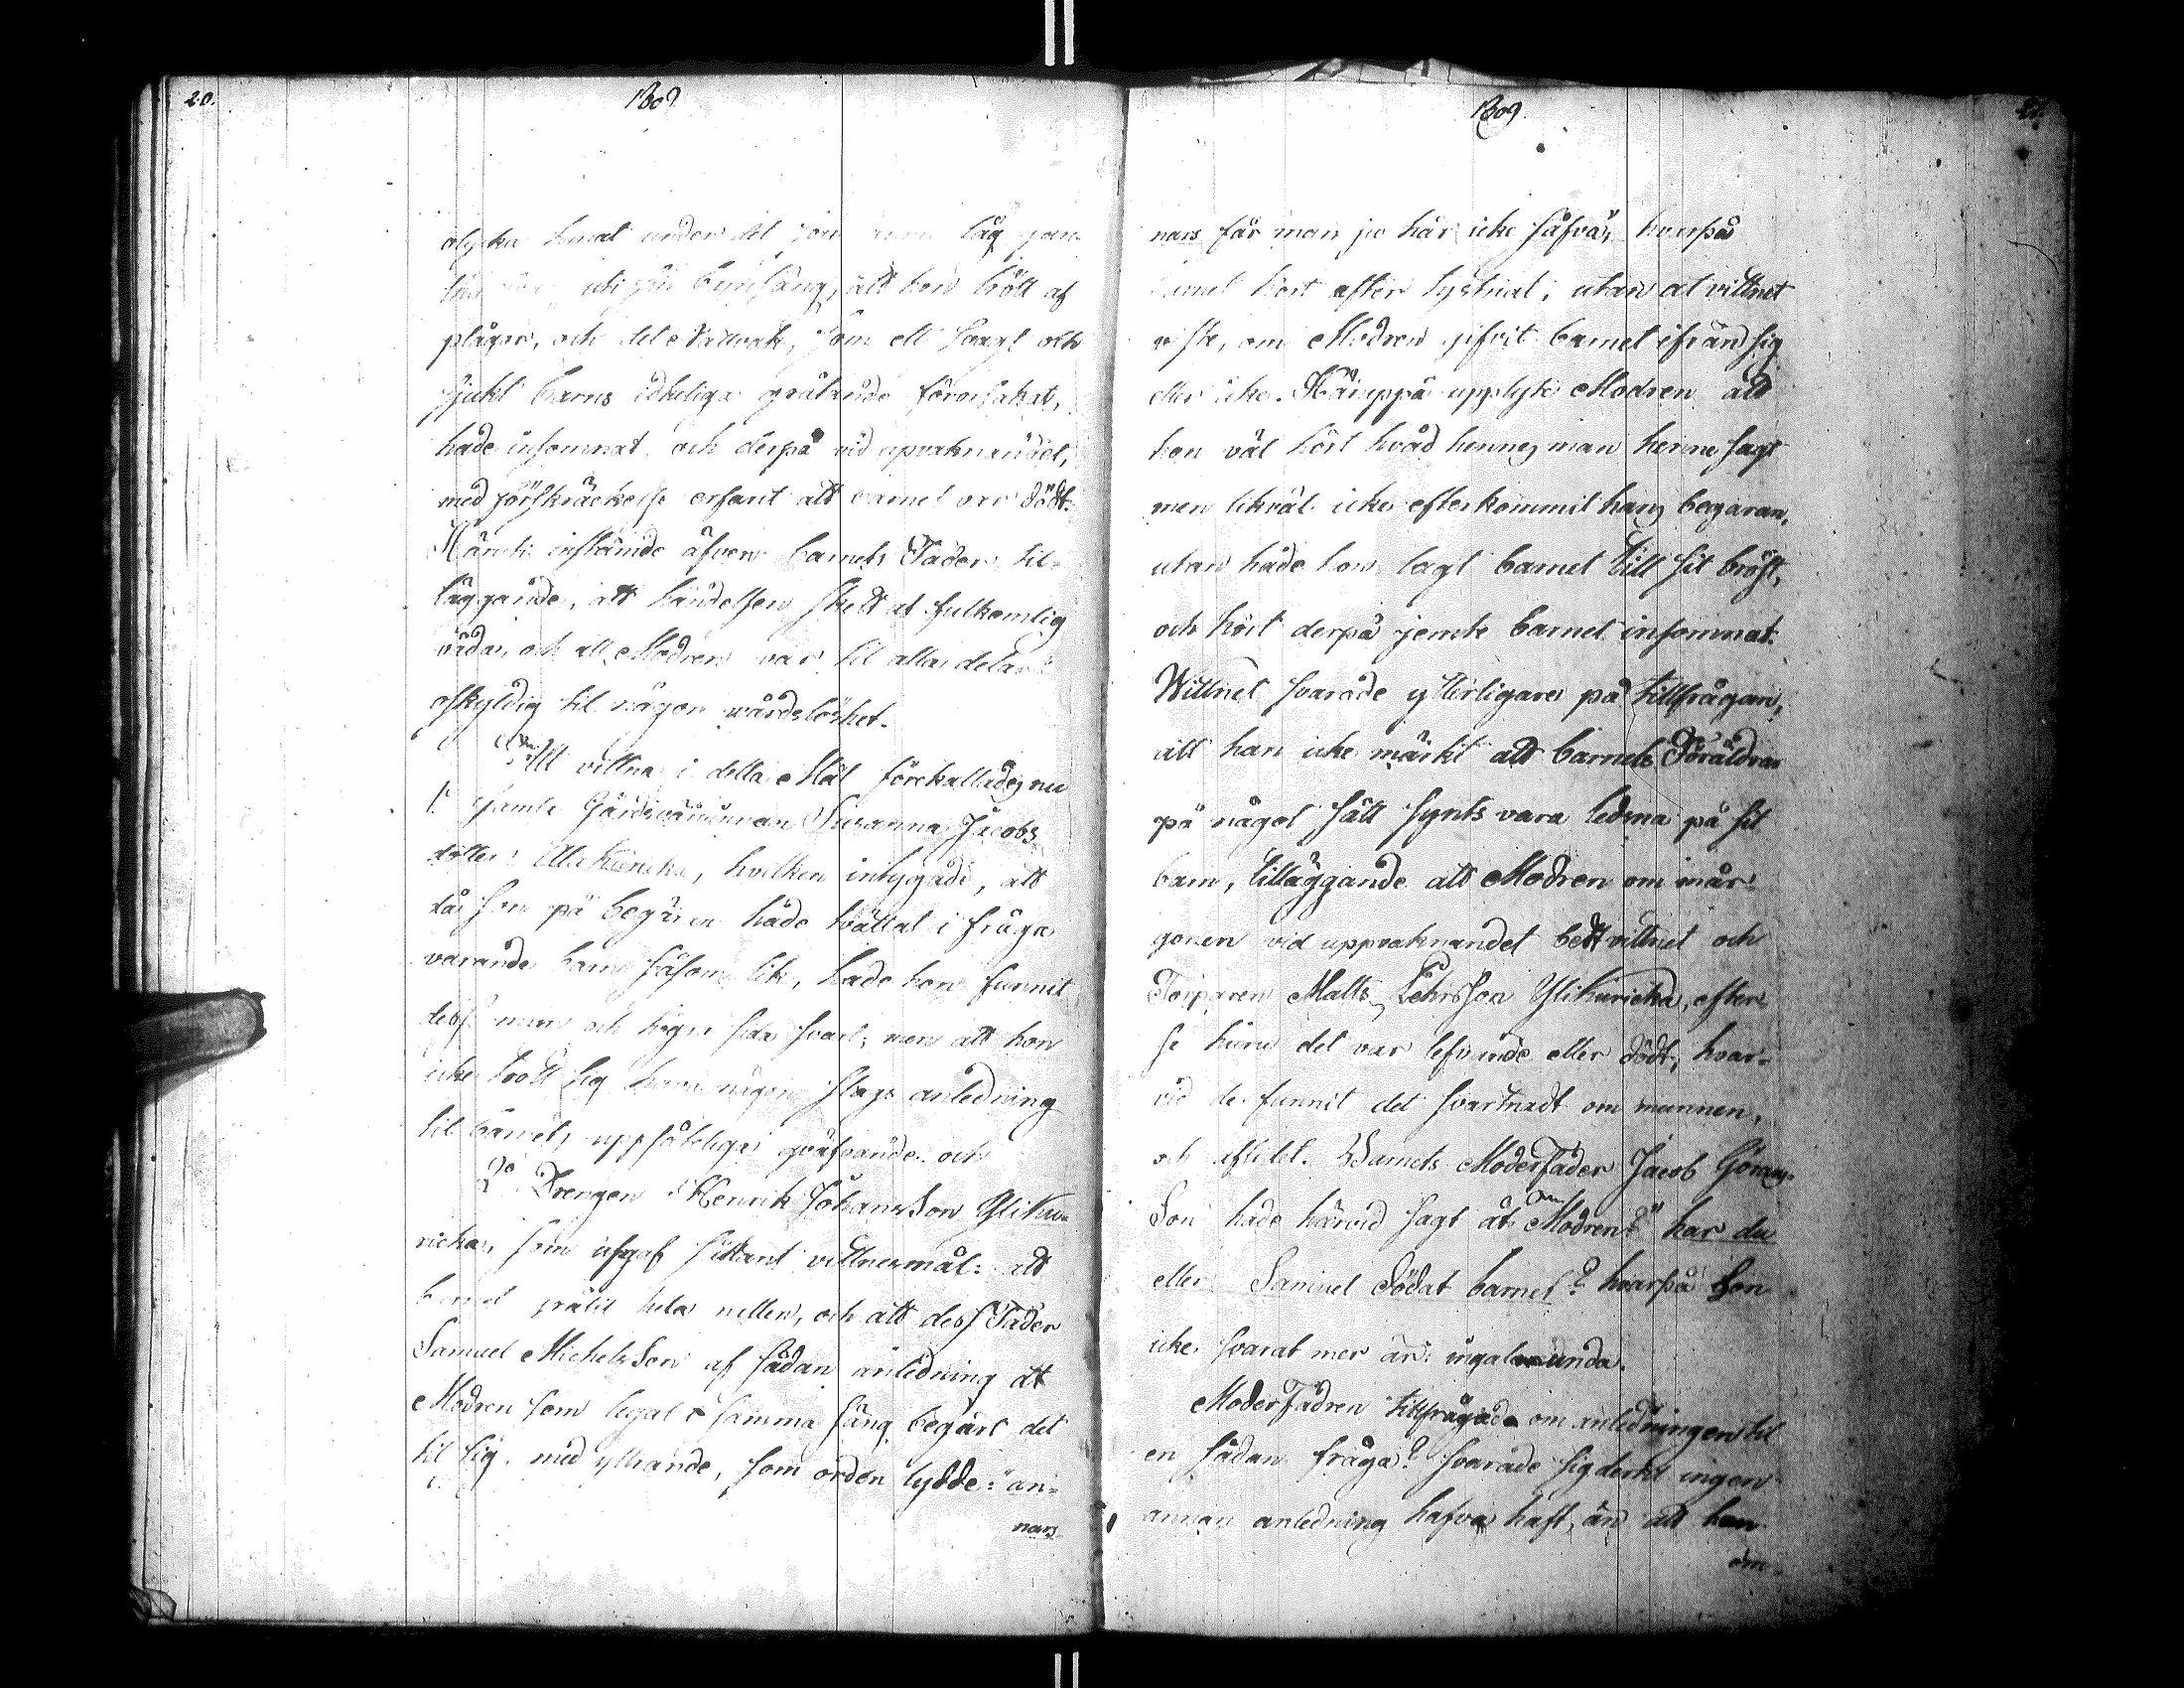 20.
1809.
olycka hindt under det hon låg
uti sin barnsäng, att hon trött af
plågor, och det Nattvak, som ett svagt och
sjukt barns idkeliga gråtande förorsakat,
hade insomnat, och derpå vid upvaknandet,
med förskräckelse erfarit att barnet var dödt.
Häruti instämde äfven barnets Fader til-
läggande, att händelsen skedt af fulkomlig
våda, och att Modren var til alla delar
oskyldig til någon wårdslöshet.
Att vittna i detta Mål förekallades nu
1o Gårdsmannen Susanna Jacobs
dotter Alakuricka, hvilken intygade, att
då hon på begäran hade tvättat i fråga
varande barn såsom lik, hade hon funnit
dess mun och högra sida svart; men att hon
icke trodt sig hava någon slags anledning
til barnets uppsåteliga qväfvande. och
2o Drengen Henrik Johansson Ylikuu-
ricka, som afgaf sådant vittnesmål: att
barnet gråtit hela natten, och att dess Fader
Samuel Michelsson af sådan anledning at
Modren som legat i samma säng begärt det
til sig, med yttrande, som orden lydde: "an-
nars
1809.
21.
nars får man ju här icke såfva", hvarpå
barnet kort efter tystnat; utan at vittnet
viste, om Modren gifvit barnet ifrån sig
eller icke. Häruppå upplyste Modren att
hon väl hört hvad hennes man henne sagt
men likväl icke efterkommit hans begäran,
utan hade hon lagt barnet till sit bröst,
och kort derpå jemte barnet insomnat.
Wittnet svarade ytterligare på tillfrågan,
att han icke märkt att barnets Föräldrar
på något sätt synts vara ledsna på sit
barn, tilläggande att Modren om mår-
gonen vid uppvaknandet bedt vittnet och
Torparen Matts Ylikuricka, efter
se huru det var lefvande eller dödt; hvar-
vid de funnit det svartnadt om munnen,
och aflidet. Barnets Moderfader Jacob Görans
Son hade härvid sagt åt Modren: "har du
eller Samuel dödat barnet"? hvarpå hon
icke svarat mer än: ingalunda.
ModerFadren tillfrågade om anledningen til
en sådan fråga? svarade sig dertil ingen
annan anledning hafva haft, än att han
om